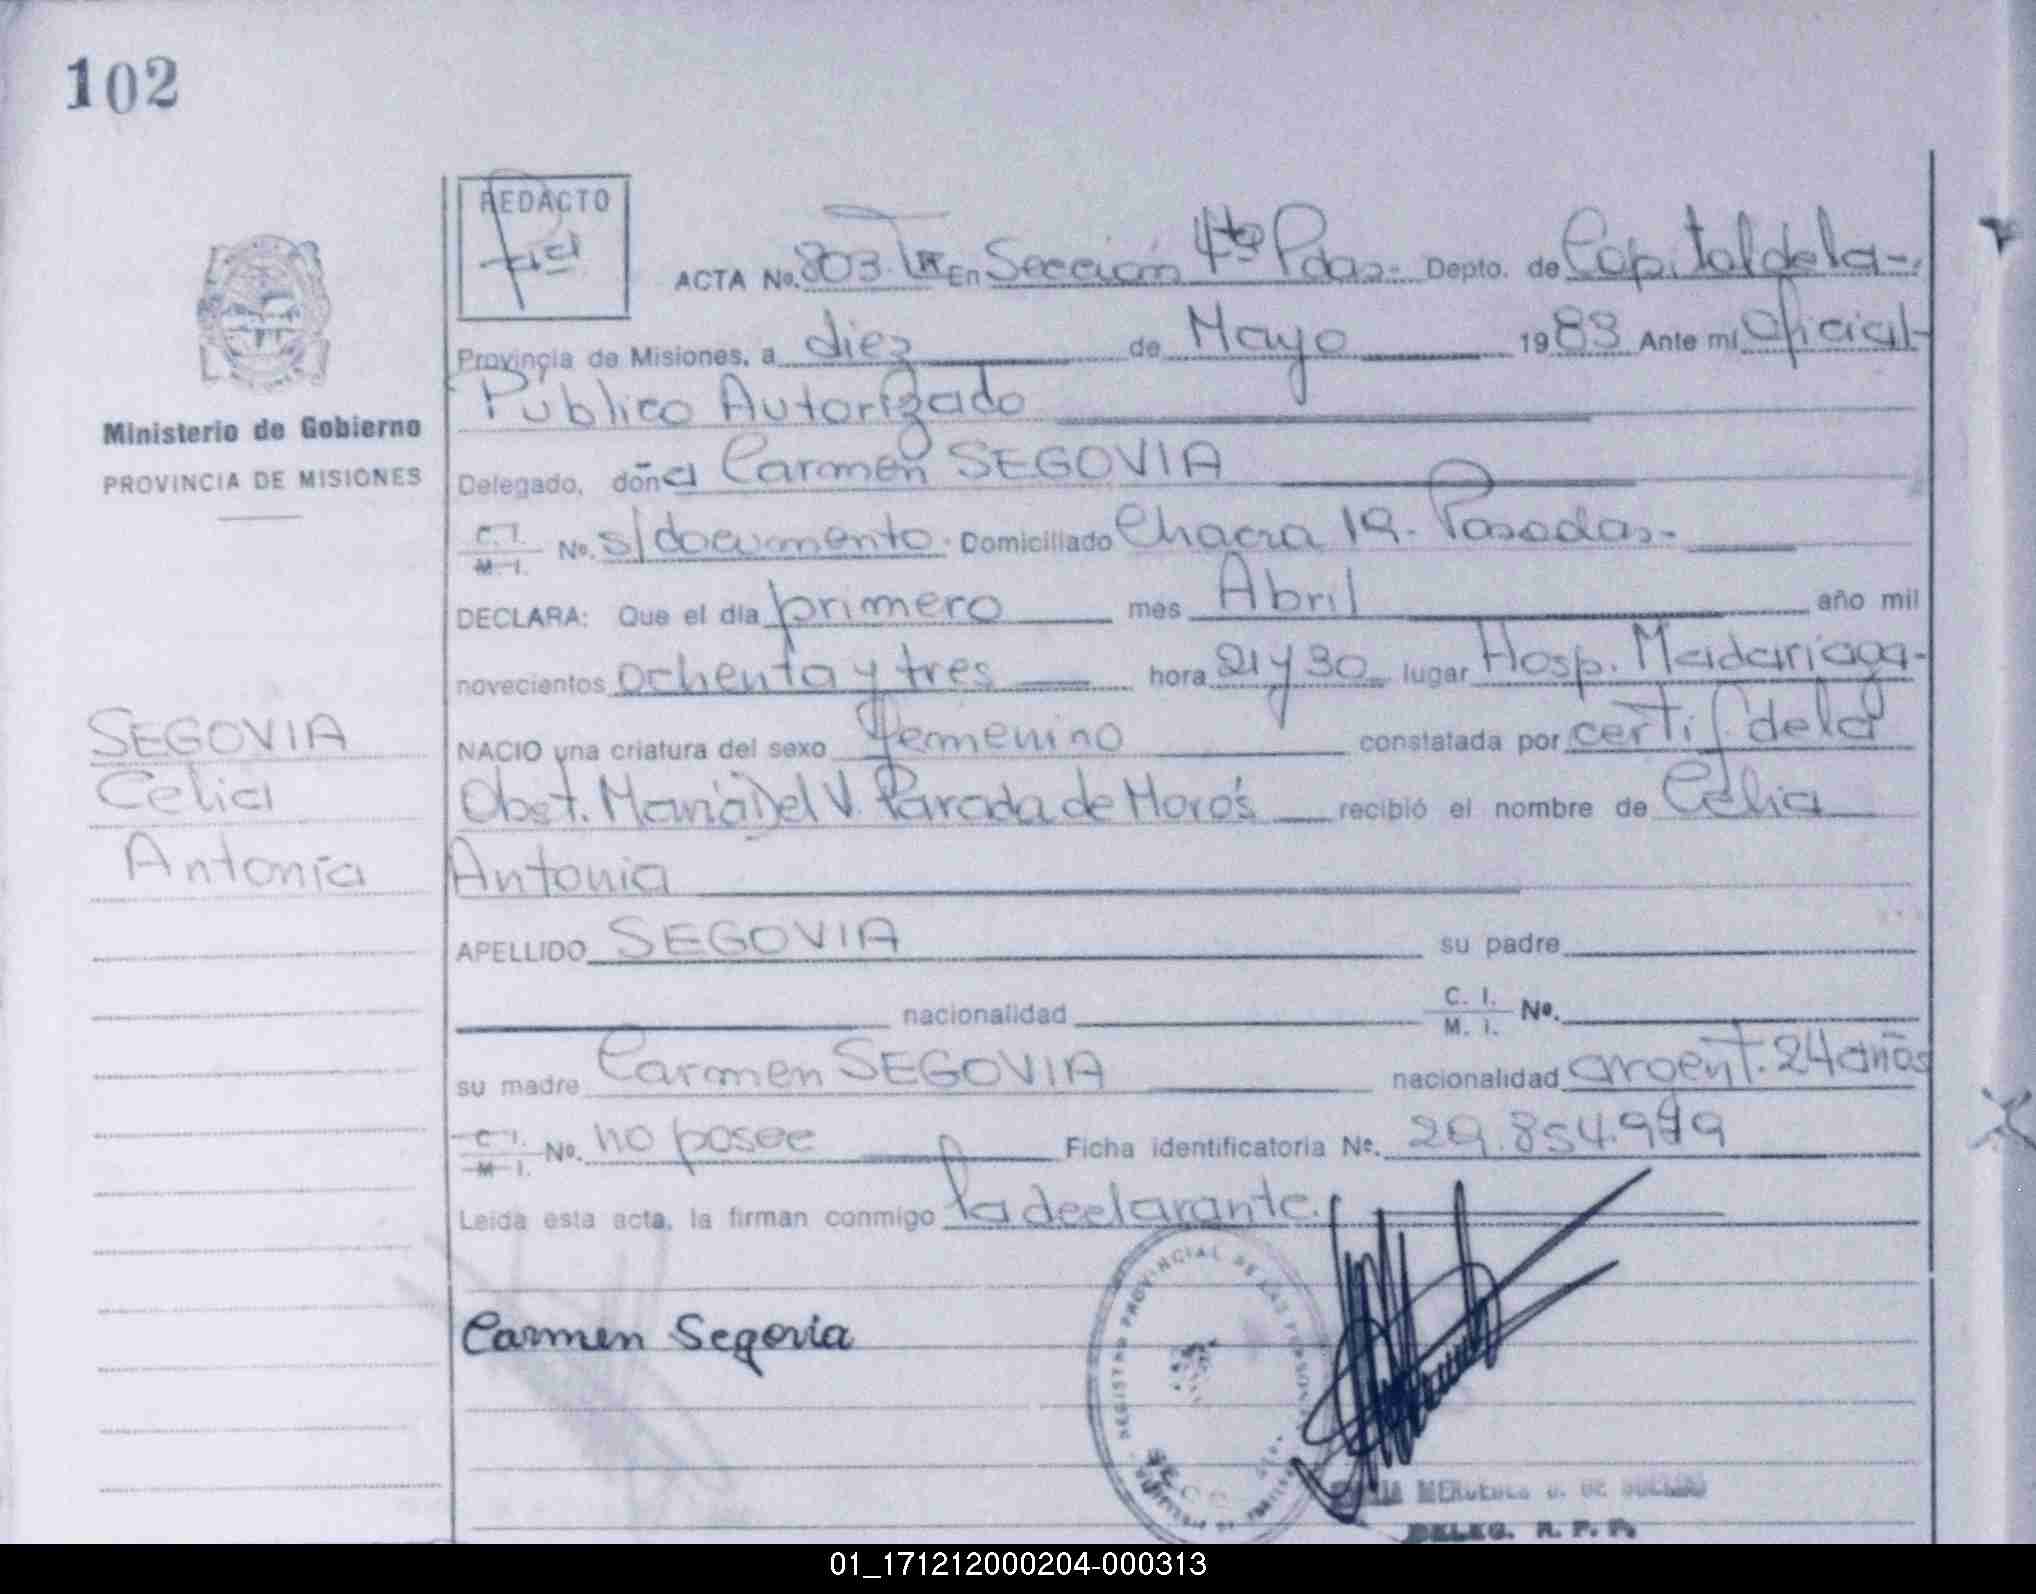 102
REDACTO
ACTA No. 803. En Sección 4ta Pdas.- Depto. de Capital de la-
Provincia de Misiones, a diez de Mayo 1983 Ante mí Oficial-
Publico Autorizado
Ministerio de Gobierno
PROVINCIA DE MISIONES
Delegado, doña Carmen SEGOVIA
C. I.
M. I. No. s/documento. Domiciliado Chacra 19. Posadas.-
DECLARA: Que el día primero mes Abril año mil
novecientos ochenta y tres hora 21 y 30 lugar Hosp. Madariaga-
SEGOVIA
Celia
Antonia
NACIO una criatura del sexo femenino constatada por certif de la
Obst. María Del V. Parada de Moro's recibió el nombre de Celia
Antonia
APELLIDO SEGOVIA su padre
nacionalidad C. I.
M. I. No.
su madre Carmen SEGOVIA nacionalidad argent. 24 años
C. I.
M. I. No. no posee Ficha identificatoria No. 29.854.979
Leída esta acta, la firman conmigo la declarante.
Carmen Segovia
REGISTRO PROVINCIAL DE LAS PERSONAS
DELEG. R. P. P.
01_171212000204-000313